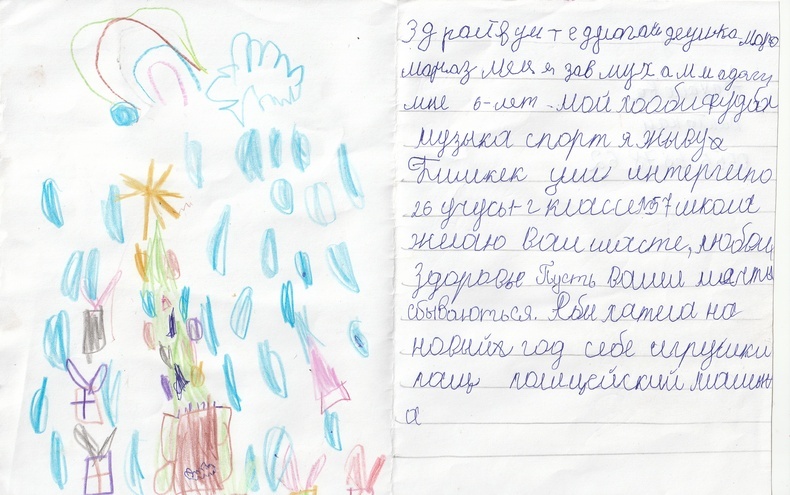 Здраствуйте дрогой деушка мороз
мароз меня завмухаммадагу
мне 6-лет - мой хооби фудбол
музыка спорт я жывух
Бишкек уии интергелпо
26 учусь 1-г класс №57 школа
желаю Вам шасте, любви
Здоровье Пусть ваши мечты
сбываються. Я бы хатела на
новыйх год себе игрушки
полицейский машин
а